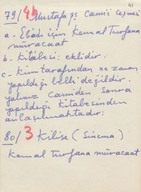 41
79/42 Mustafa Pş Camii Çeşmesi
a. Elde için Kemal Turfana
müracaat
b. Kitabesi eklidir.
c. Kim tarafından ne zaman
yapıldığı belli değildir.
yalnız Camiden sonra
yapıldığı kitabesinden
anlaşılmaktadır.
80/3 Kilise (Sinema)
Kemal Turfana müracaat